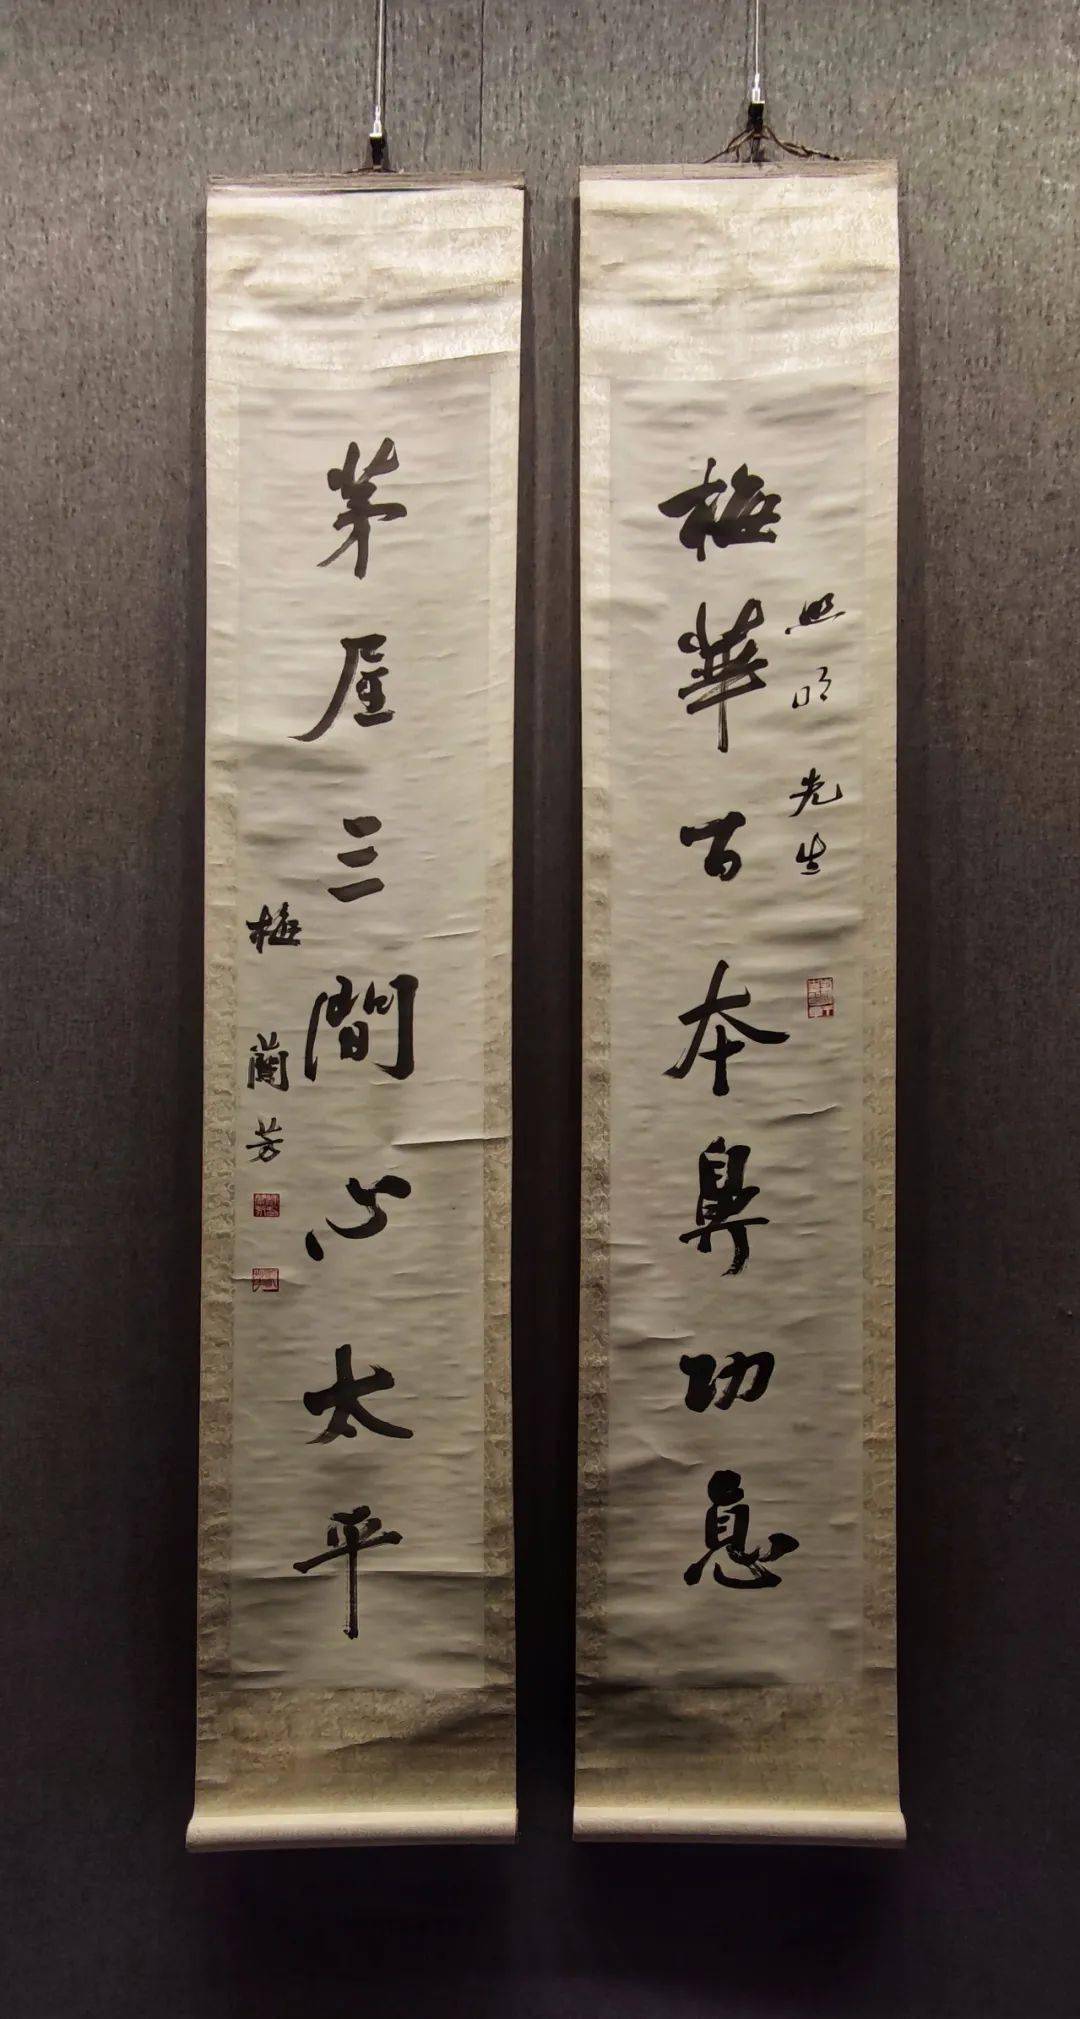 梅華百本鼻功息
照明先生
茅屋三間心太平
梅蘭芳